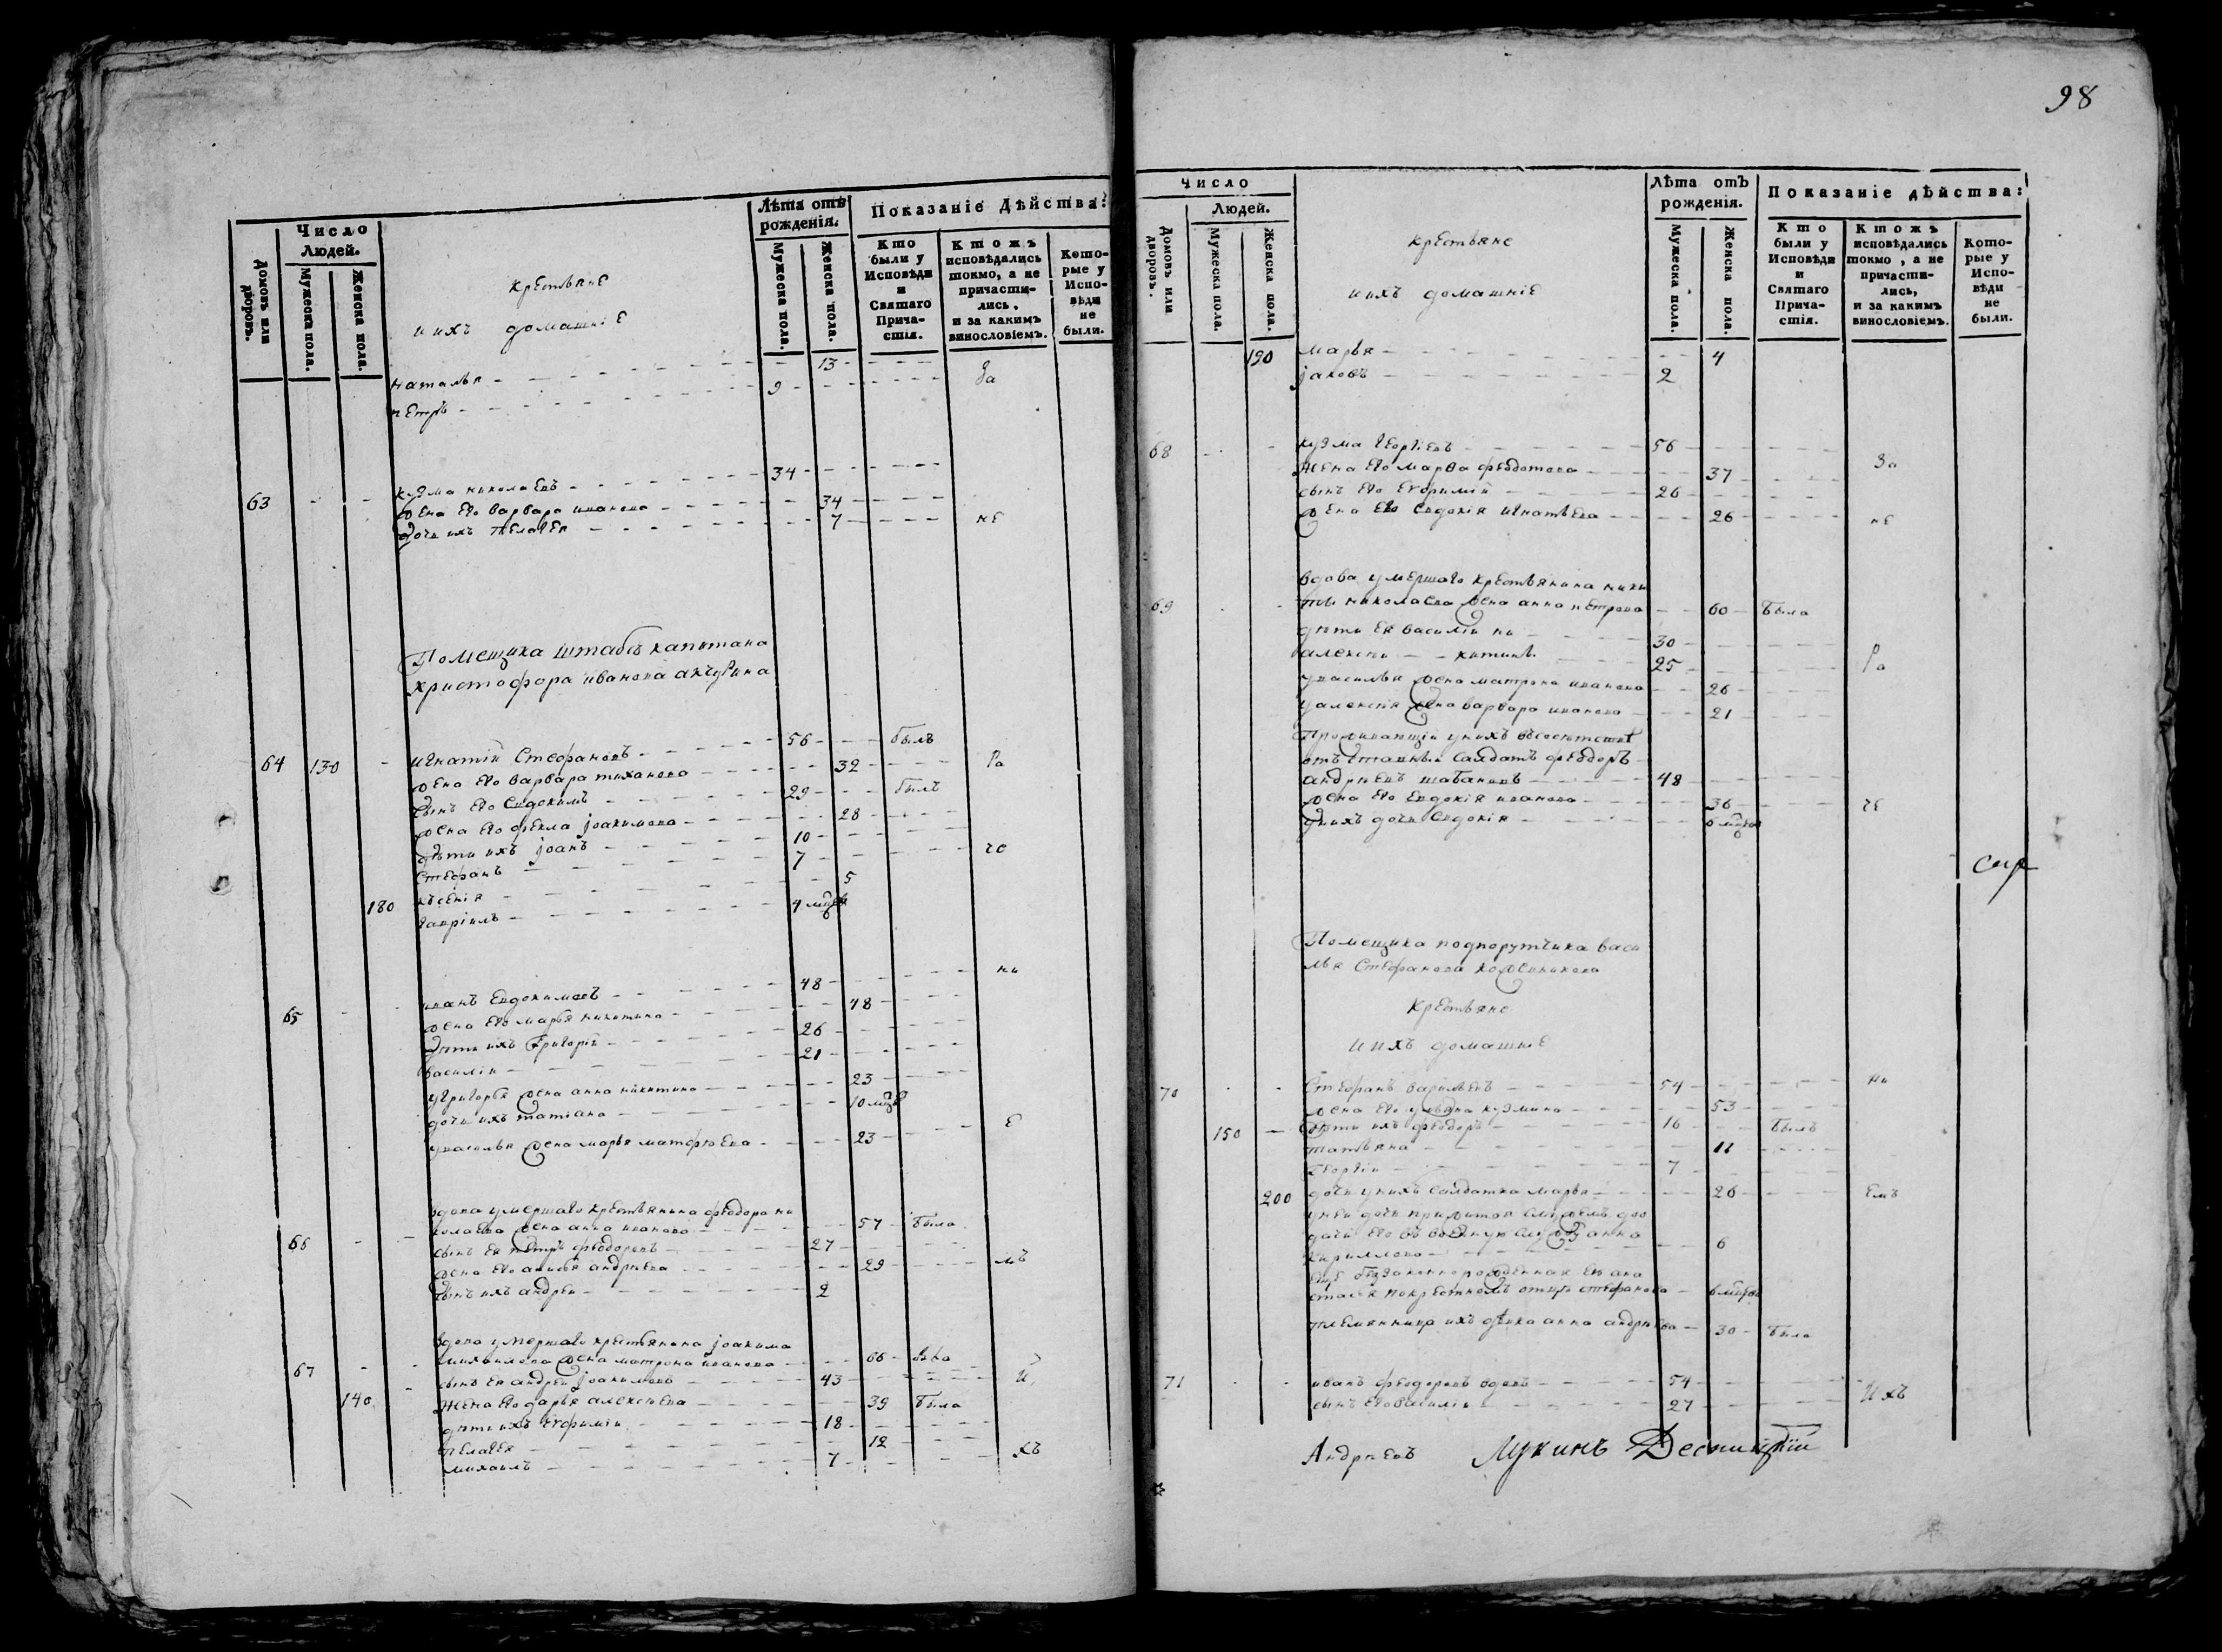 Число
Людей.
Домовъ или дворовъ.
Мужеска пола.
Женска пола.
крестьяне
и ихъ домашніе
Лѣта отъ рожденія.
Мужеска пола.
Женска пола.
Показаніе Дѣйства:
Кто были у Исповѣди и Святаго Прича-стія.
Ктожъ исповѣдались токмо, а не причасти-лись, и за какимъ винословіемъ.
Кото-рые у Испо-вѣди не были.
наталья 13
петръ 9 За
63 кузма николаевъ 34
жена его варвара иванова 34
дочь ихъ пелагея 7 не
Помещика штабсъ капитана
христофора иванова
64 130 игнатій Стефановъ 56 былъ
жена его варвара тиханова 32 Ра
сынъ его Евдокимъ 29 былъ
жена его фекла іоакимова 28
дѣти ихъ іоанъ 10
Стефанъ 7 че
ксенія 5
180 гавріилъ 4 мцов
65 иванъ Евдокимовъ 48 ни
жена его марья никитина 48
дѣти ихъ Григорій 26
василій 21
у Григорья жена анна никитина 23
дочь ихъ татіана 10 мцов
у василья жена марья матфѣева 23 е
вдова умершаго крестьянина феодора ни
66 колаева жена анна иванова 57 была
сынъ ея петръ феодоровъ 27
жена его андрѣева 29 мъ
сынъ ихъ андрей 2
вдова умершаго крестьянина іоакима
67 михаилова жена матрона иванова 66
сынъ ея андрей іоакимовъ 43 и
140 жена его дарья алексѣева 39 была
дѣти ихъ Ефимій 18
пелагея 12
михаилъ 7 хъ
98
Число
Людей.
Домовъ или дворовъ.
Мужеска пола.
Женска пола.
крестьяне
и ихъ домашніе
Лѣта отъ рожденія.
Мужеска пола.
Женска пола.
Показаніе дѣйства:
Кто были у Исповѣди и Святаго Прича-стія.
Ктожъ исповѣдались токмо, а не причасти-лись, и за какимъ винословіемъ.
Кото-рые у Испо-вѣди не были.
190 марья 4
іаковъ 2
68 кузма Георгіевъ 56
жена его марва федотова 37 За
сынъ его 26
жена его Евдокія игнатьева 26 не
вдова умершаго крестьянина ники
69 ты николаева жена анна петрова 60 была
дѣти ея василій ни 30
алексѣй китины 25 Ра
у василья жена матрона иванова 26
у алексѣя жена варвара иванова 21
Проживающій у нихъ
отъставный салдатъ феодоръ
андрѣевъ шабановъ 48
жена его Евдокія иванова 36 че
у нихъ дочь Евдокія 6 мцов
Помещика подпорутчика васи
лья Стефанова кожевникова
крестьяне
и ихъ домашніе
70 Стефанъ василевъ 54 ни
жена его ульяна кузмина 53
150 дѣти ихъ феодоръ 16 былъ
татьяна 11
Георгій 7
200 дочь у нихъ салдатка марья 26 емъ
у неи дочь прижитая съ мужемъ до о
дачи его въ военную службу анна
кириллова 6
еще беззаконнорожденная
по крестномъ отцѣ стефанова 6 мцов
племянница ихъ анна андрѣева 30 была
71 иванъ феодоровъ вдовъ 54
сынъ его василій 27 ихъ
Андрѣевъ Лукинъ